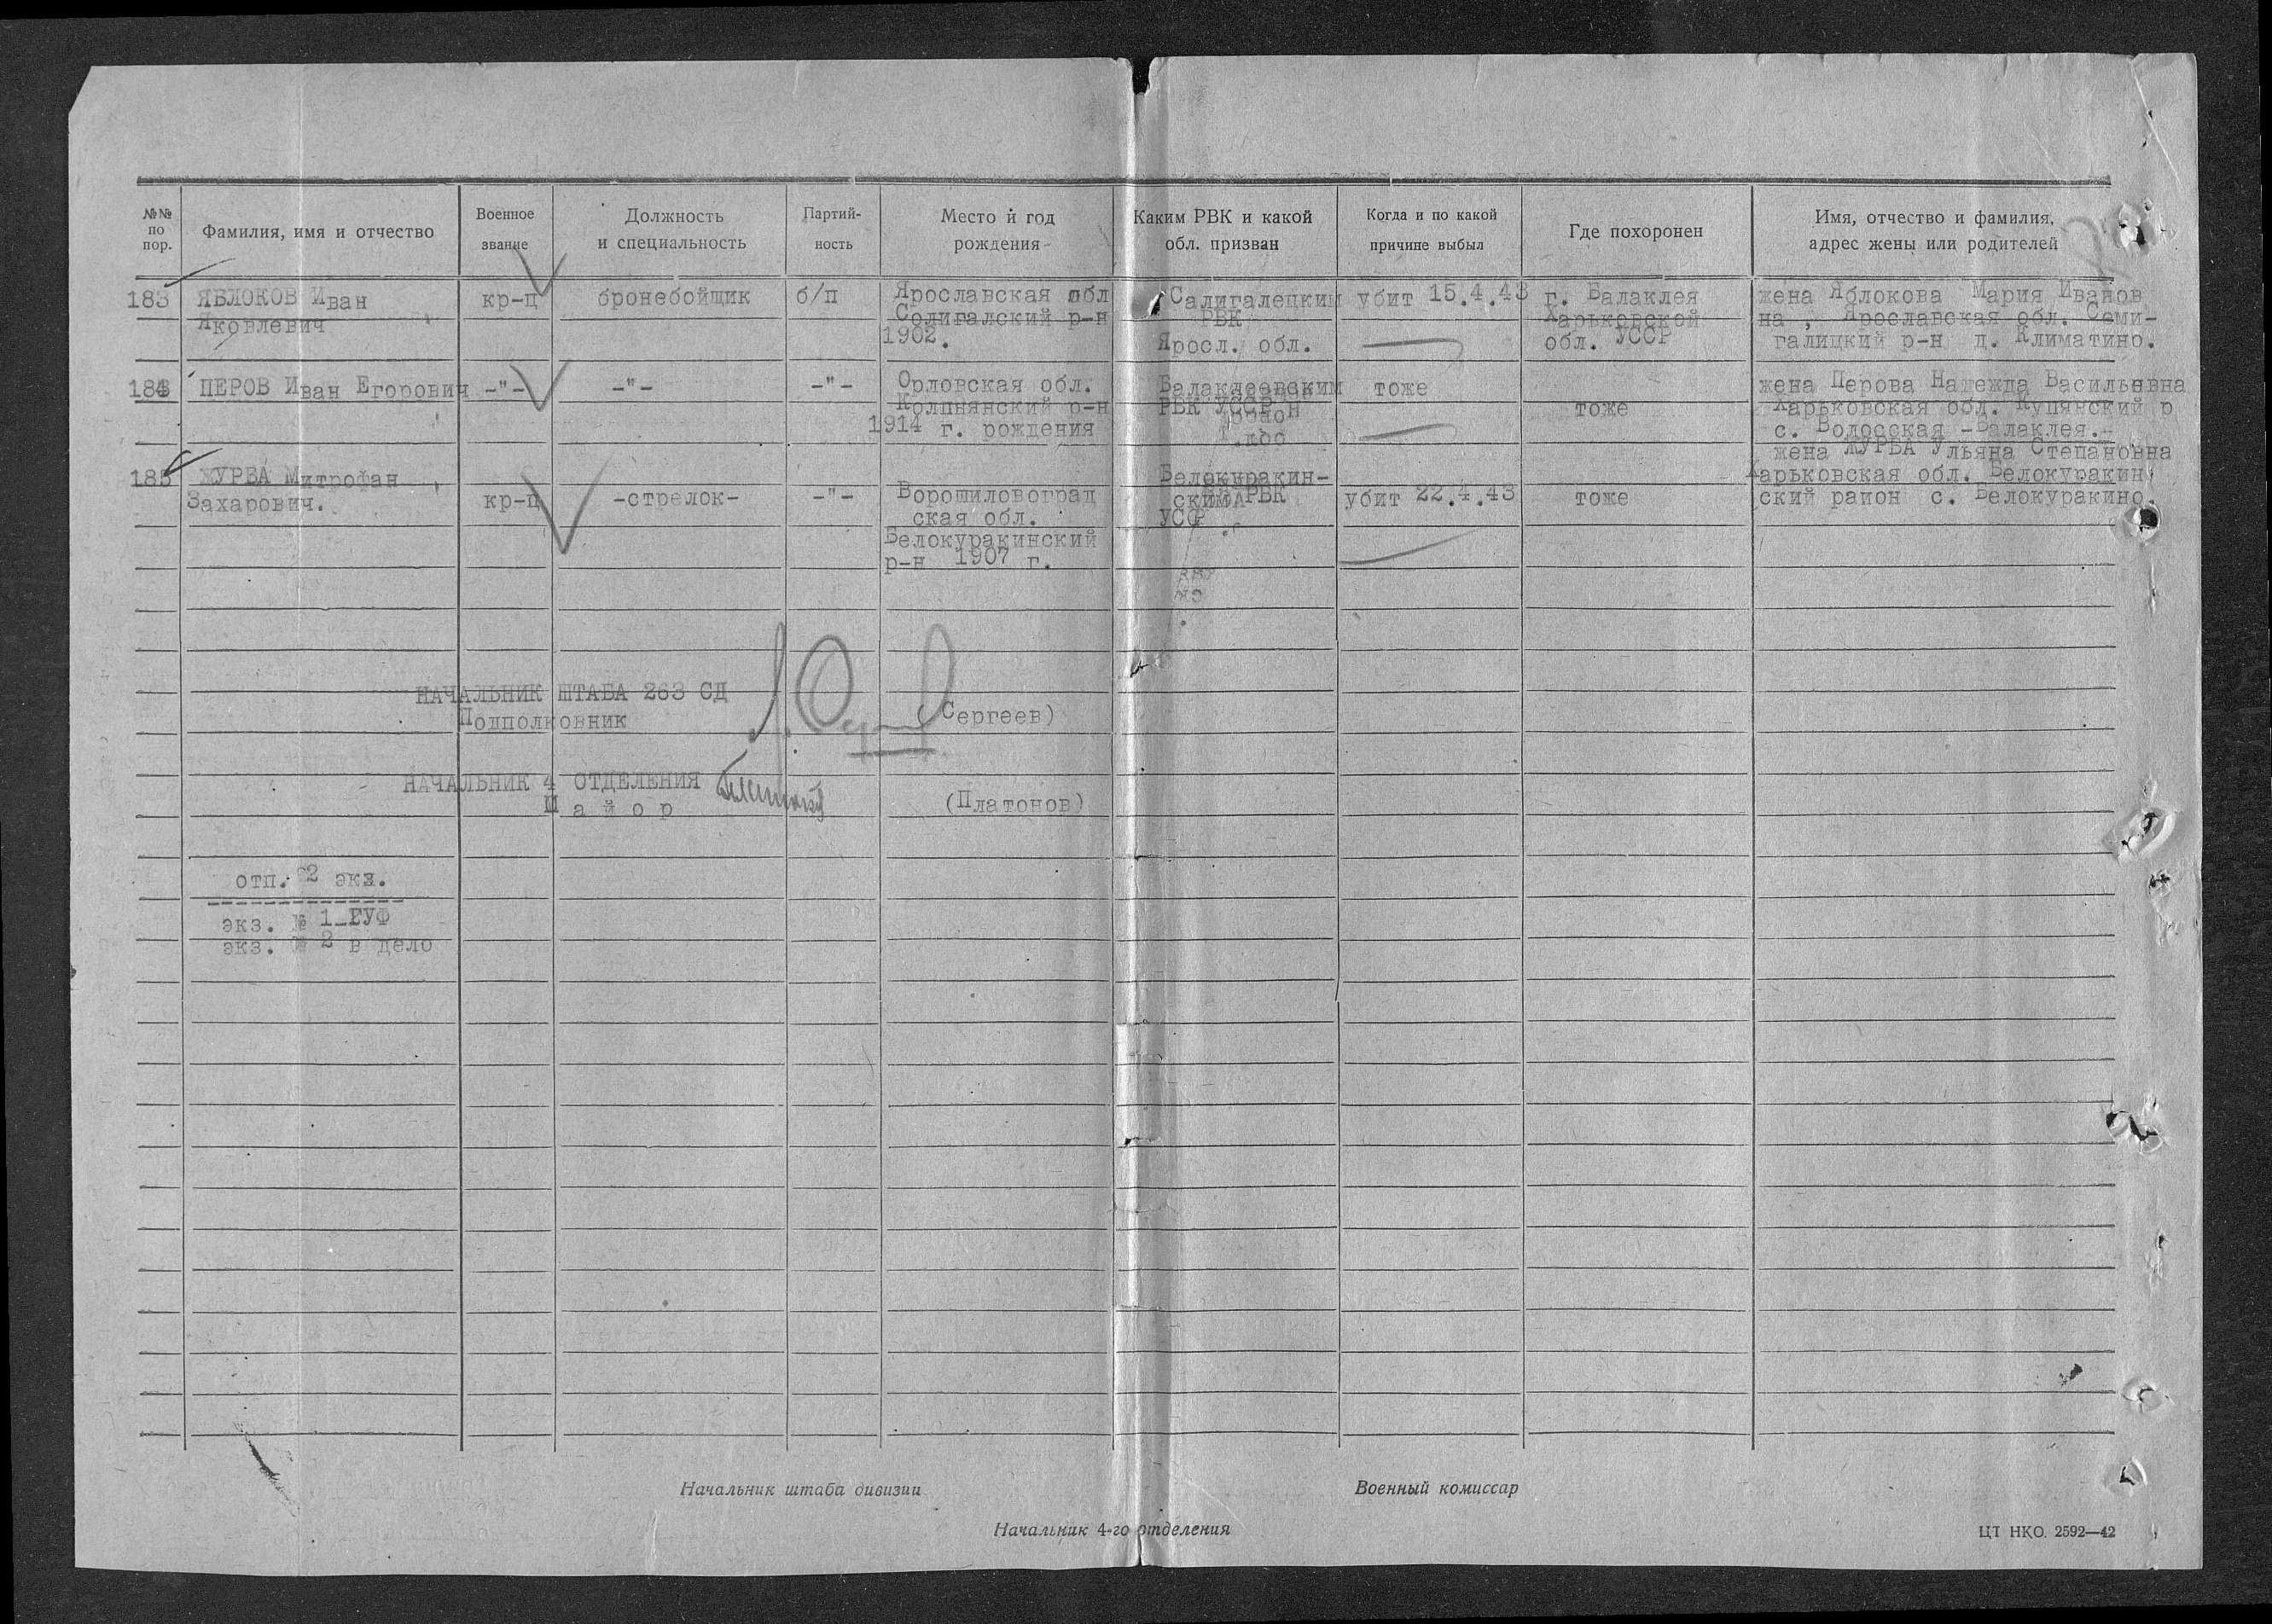 №№ по пор.
Фамилия, имя и отчество
Военное звание
Должность и специальность
Партий- ность
Место и год рождения
Каким РВК и какой обл. призван
Когда и по какой причине выбыл
Где похоронен
Имя, отчество и фамилия, адрес жены или родителей
183 ЯБЛОКОВ Иван кр-ц бронебойщик б/п Ярославская обл Салигалецким убит 15.4.43 г. Балаклея жена Яблокова Мария Иванов
Яковлевич Солигалский р-н РВК Харьковской на , Ярославская обл. Семи-
1902. Яросл. обл. обл. УССР галицкий р-н д. Климатино.
184 ПЕРОВ Иван Егорович -"- -"- -"- Орловская обл. Балаклеевским тоже жена Перова Надежда Васильевна
Колпнянский р-н РВК УССР тоже Харьковская обл. Купянский р
1914 г. рождения с. Волосская -Балаклея.-
жена ЖУРБА Ульяна Степановна
185 ЖУРБА Митрофан Белокуракин- Харьковская обл. Белокуракин
Захарович. кр-ц -стрелок- -"- Ворошиловоград ским РВК убит 22.4.43 тоже ский район с. Белокуракино.
ская обл. УССР
Белокуракинский
р-н 1907 г.
НАЧАЛЬНИК ШТАБА 263 СД
Подполковник (Сергеев)
НАЧАЛЬНИК 4 ОТДЕЛЕНИЯ
М а й о р (Платонов)
отп. 2 экз.
экз. № 1-ГУФ
экз. № 2 в дело
Начальник штаба дивизии
Военный комиссар
Начальник 4-го отделения
ЦТ НКО. 2592—42